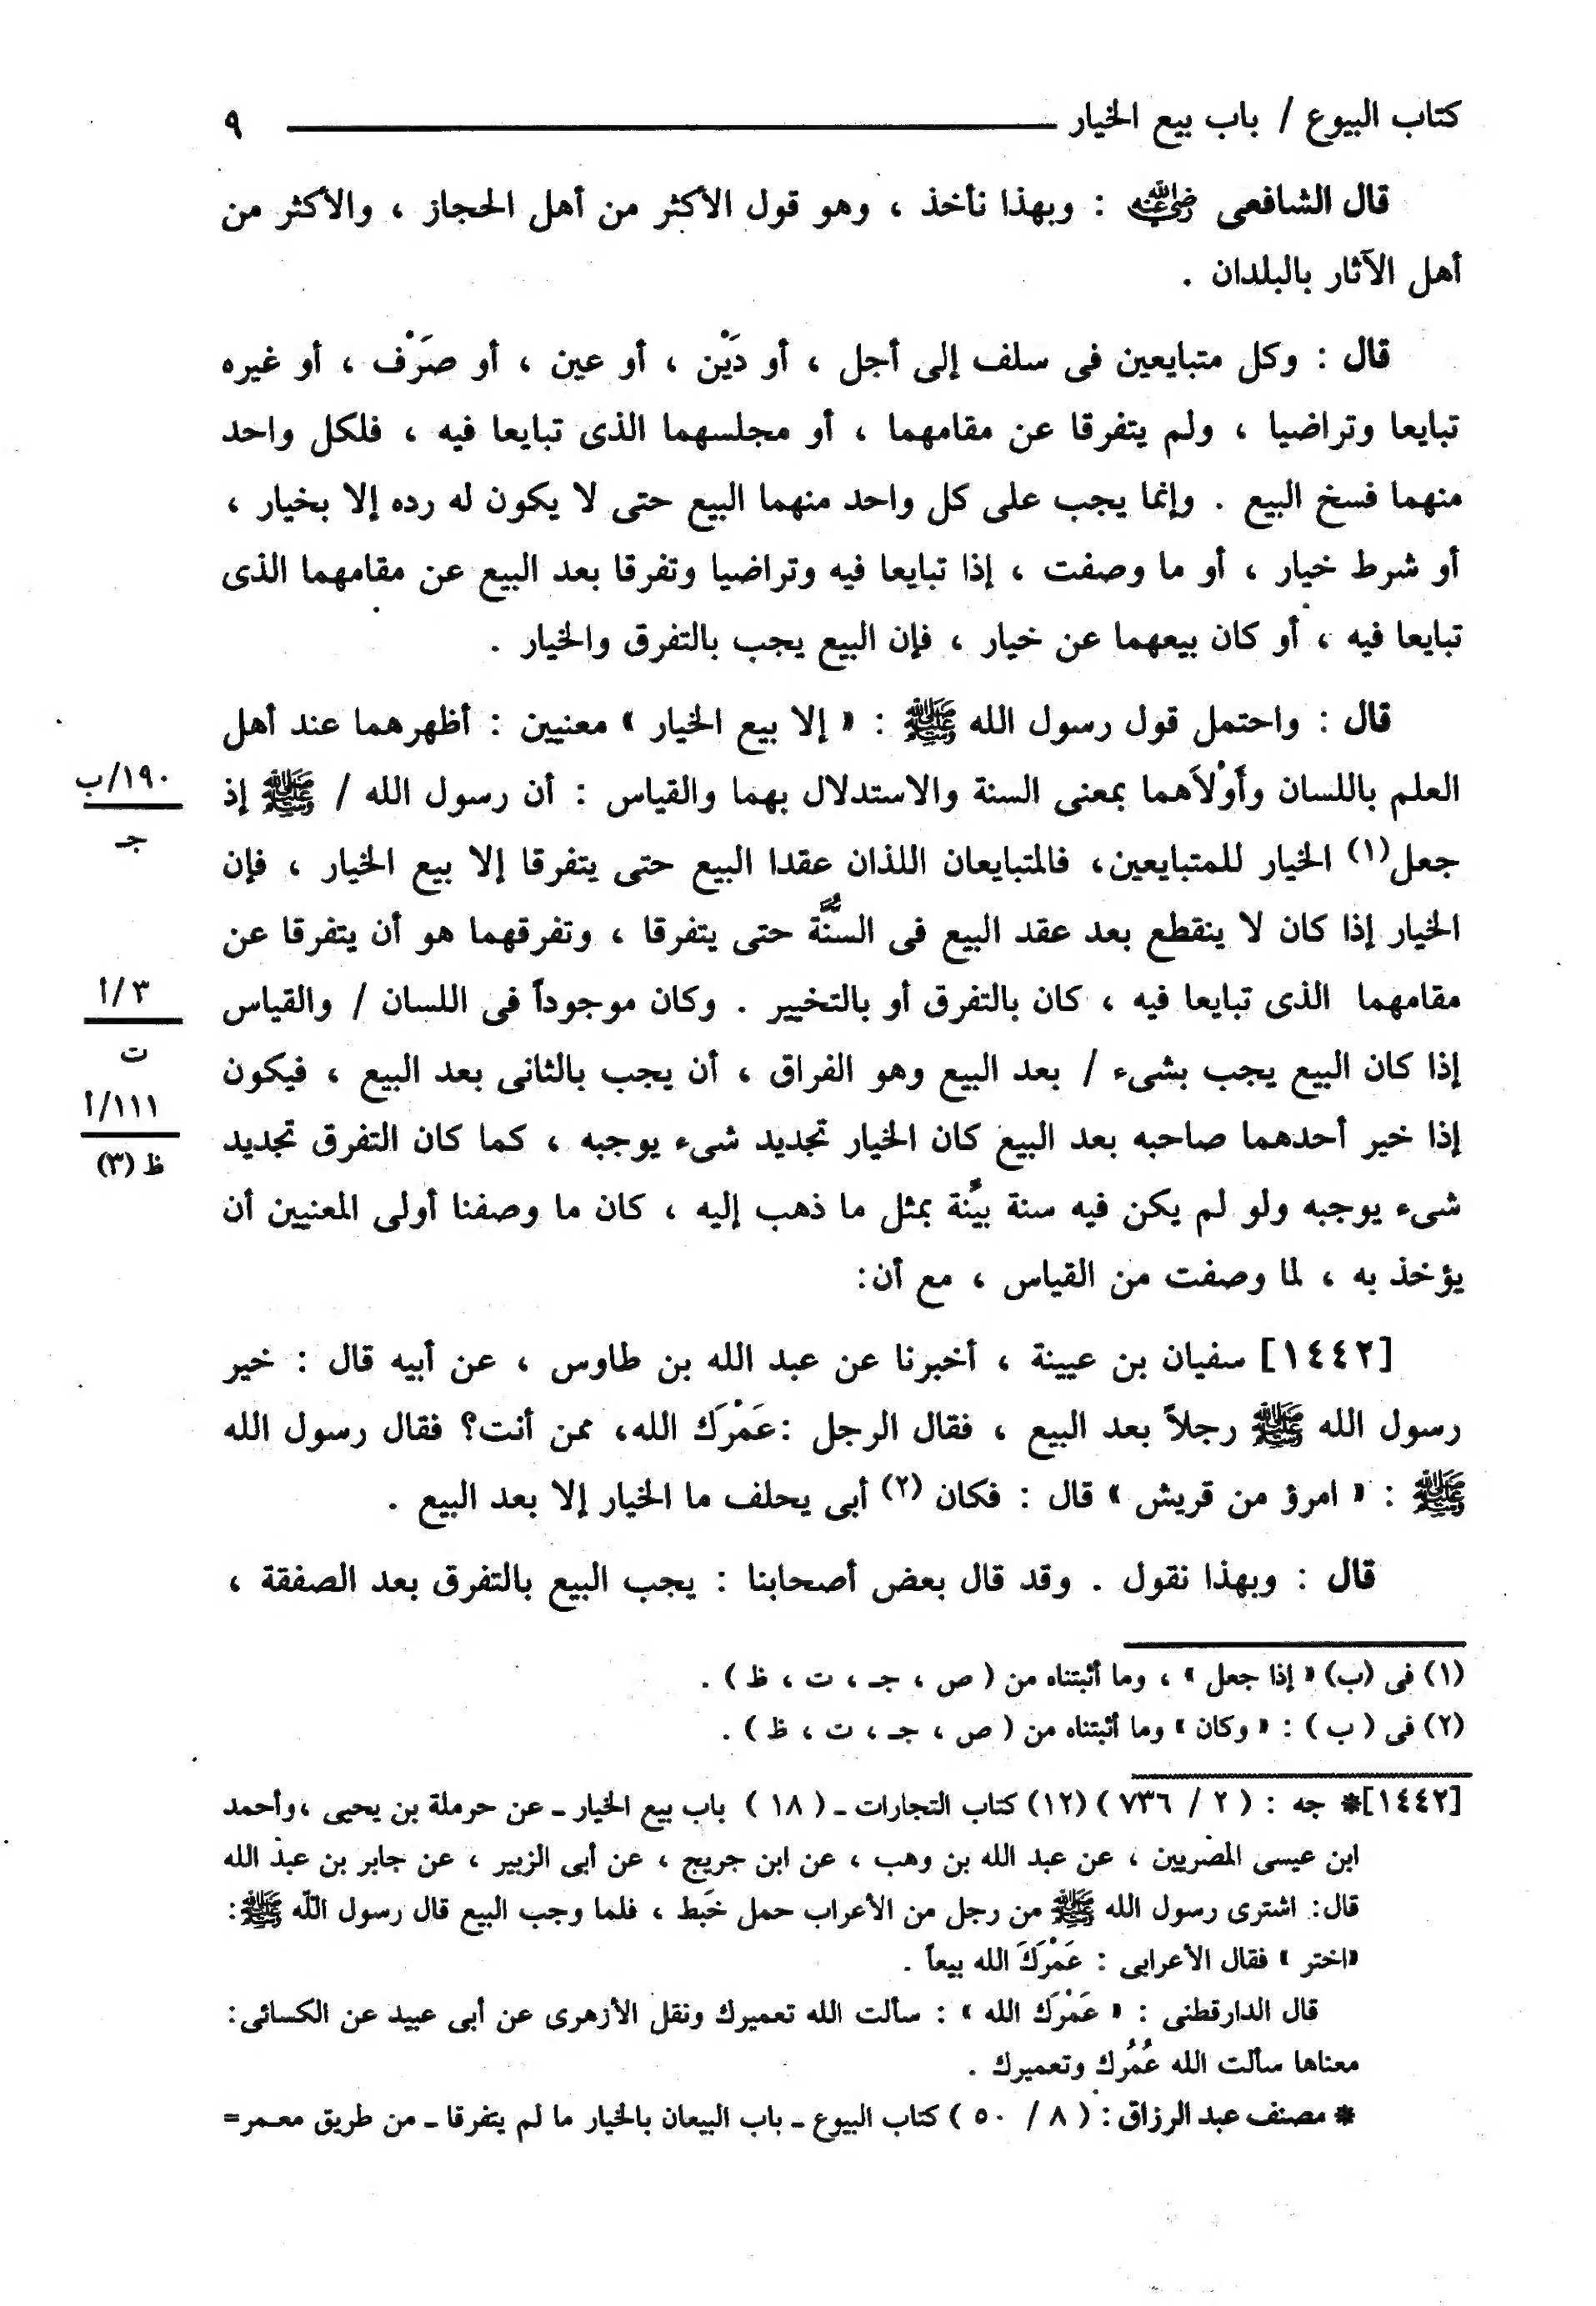 كتاب البيوع / باب بيع الخيار ٩
قال الشافعى رضي الله عنه : وبهذا نأخذ ، وهو قول الأكثر من أهل الحجاز ، والأكثر من
أهل الآثار بالبلدان .
قال : وكل متبايعين فى سلف إلى أجل ، أو دَيْن ، أو عين ، أو صَرْف ، أو غيره
تبايعا وتراضيا ، ولم يتفرقا عن مقامهما ، أو مجلسهما الذى تبايعا فيه ، فلكل واحد
منهما فسخ البيع . وإنما يجب على كل واحد منهما البيع حتى لا يكون له رده إلا بخيار ،
أو شرط خيار ، أو ما وصفت ، إذا تبايعا فيه وتراضيا وتفرقا بعد البيع عن مقامهما الذى
تبايعا فيه ، أو كان بيعهما عن خيار ، فإن البيع يجب بالتفرق والخيار .
قال : واحتمل قول رسول الله ﷺ : « إلا بيع الخيار » معنيين : أظهرهما عند أهل
العلم باللسان وأَوْلاَهما بمعنى السنة والاستدلال بهما والقياس : أن رسول الله / ﷺ إذ
١٩٠/ب
جـ
جعل(١) الخيار للمتبايعين، فالمتبايعان اللذان عقدا البيع حتى يتفرقا إلا بيع الخيار ، فإن
الخيار إذا كان لا ينقطع بعد عقد البيع فى السُّنَّة حتى يتفرقا ، وتفرقهما هو أن يتفرقا عن
مقامهما الذى تبايعا فيه ، كان بالتفرق أو بالتخيير . وكان موجوداً فى اللسان / والقياس
٣/أ
ت
إذا كان البيع يجب بشىء / بعد البيع وهو الفراق ، أن يجب بالثانى بعد البيع ، فيكون
١١١/أ
ظ (٣)
إذا خير أحدهما صاحبه بعد البيع كان الخيار تجديد شىء يوجبه ، كما كان التفرق تجديد
شىء يوجبه ولو لم يكن فيه سنة بيِّنة بمثل ما ذهب إليه ، كان ما وصفنا أولى المعنيين أن
يؤخذ به ، لما وصفت من القياس ، مع أن:
[١٤٤٢] سفيان بن عيينة ، أخبرنا عن عبد الله بن طاوس ، عن أبيه قال : خير
رسول الله ﷺ رجلاً بعد البيع ، فقال الرجل :عَمْرَك الله، ممن أنت؟ فقال رسول الله
ﷺ : « امرؤ من قريش » قال : فكان (٢) أبى يحلف ما الخيار إلا بعد البيع .
قال : وبهذا نقول . وقد قال بعض أصحابنا : يجب البيع بالتفرق بعد الصفقة ،
(١) فى (ب) « إذا جعل » ، وما أثبتناه من ( ص ، جـ ، ت ، ظ ) .
(٢) فى ( ب ) : « وكان » وما أثبتناه من ( ص ، جـ ، ت ، ظ ) .
[١٤٤٢]* جه : ( ٢ / ٧٣٦ ) (١٢) كتاب التجارات ـ ( ١٨ ) باب بيع الخيار ـ عن حرملة بن يحيى ،وأحمد
ابن عيسى المصريين ، عن عبد الله بن وهب ، عن ابن جريج ، عن أبى الزبير ، عن جابر بن عبد الله
قال: اشترى رسول الله ﷺ من رجل من الأعراب حمل خَبط ، فلما وجب البيع قال رسول اللّه ﷺ:
«اختر » فقال الأعرابى : عَمْرَكَ الله بيعاً .
قال الدارقطنى : « عَمْرَك الله » : سألت الله تعميرك ونقل الأزهرى عن أبى عبيد عن الكسائى:
معناها سألت الله عُمُرك وتعميرك .
* مصنف عبد الرزاق : ( ٨ / ٥٠ ) كتاب البيوع ـ باب البيعان بالخيار ما لم يتفرقا ـ من طريق معـمر=